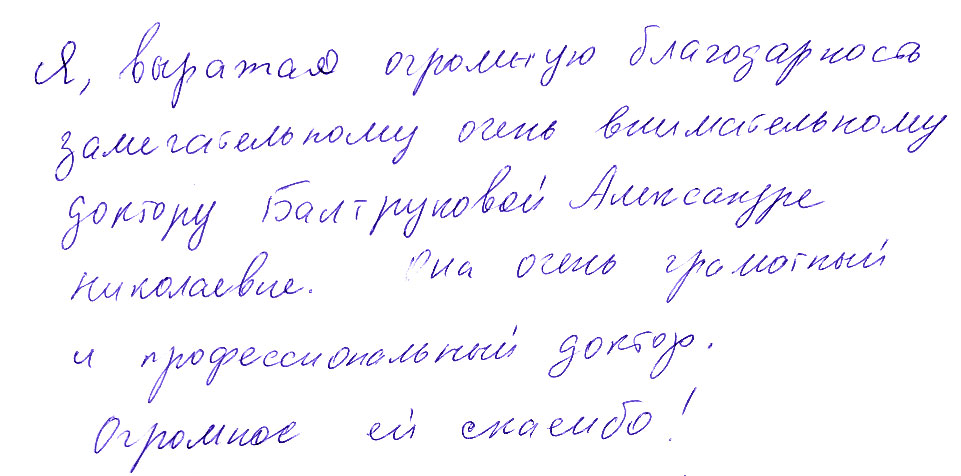 Я, выражаю огромную благодарность
замечательному очень внимательному
доктору Балтруковой Александре
Николаевне. Она очень грамотный
и профессиональный доктор.
Огромное ей спасибо!